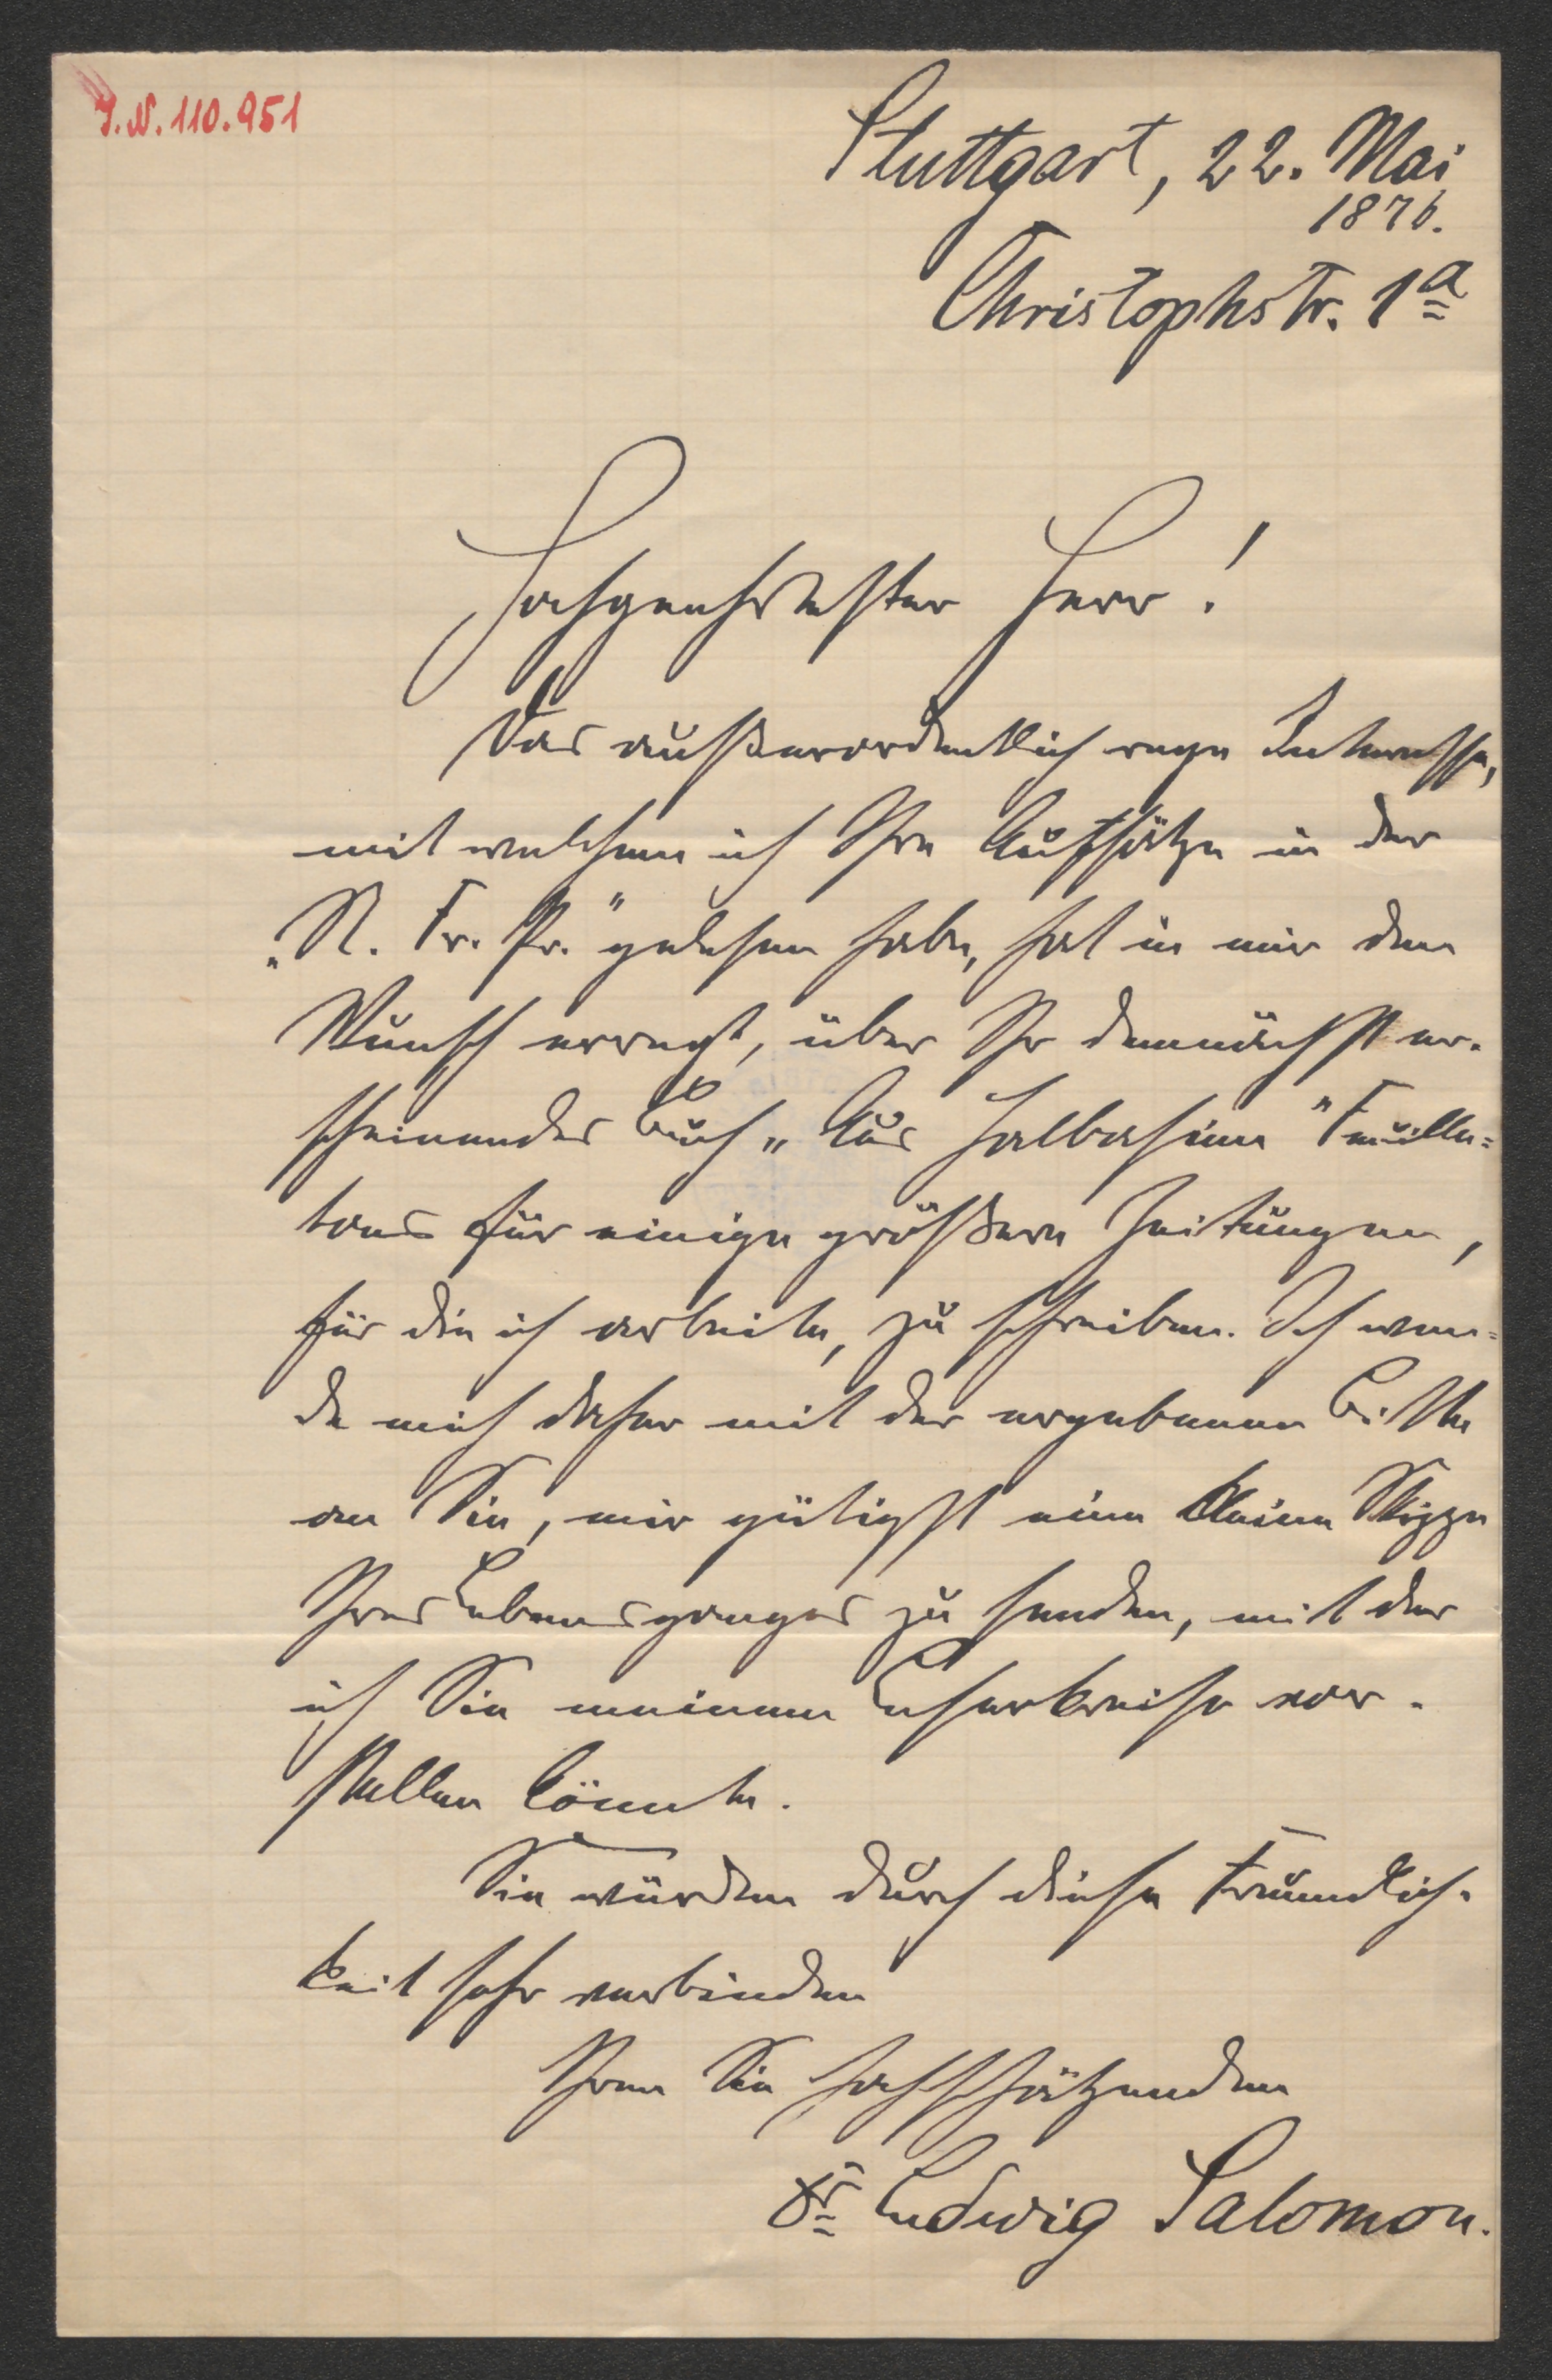 I.N. 110.951
Stuttgart, 22. Mai
1876.
Christophstr. 1a
Hochgeehrtester Herr!
Das außerordentlich rege Interesse,
mit welchem ich Ihre Aufsätze in der
„N. Fr. Pr." gelesen habe, hat in mir den
Wunsch erregt, über Ihr demnächst er-
scheinendes Buch „Aus Halbasien" Feuille-
tons für einige größere Zeitungen,
für die ich arbeite, zu schreiben. Ich wen-
de mich daher mit der ergebenen Bitte
an Sie, mir gütigst eine kleine Skizze
Ihres Lebensganges zu senden, mit der
ich Sie meinem Leserkreise vor-
stellen könnte.
Sie würden durch diese Freundlich-
keit sehr verbinden
Ihren Sie hochschätzenden
Dr Ludwig Salomon.